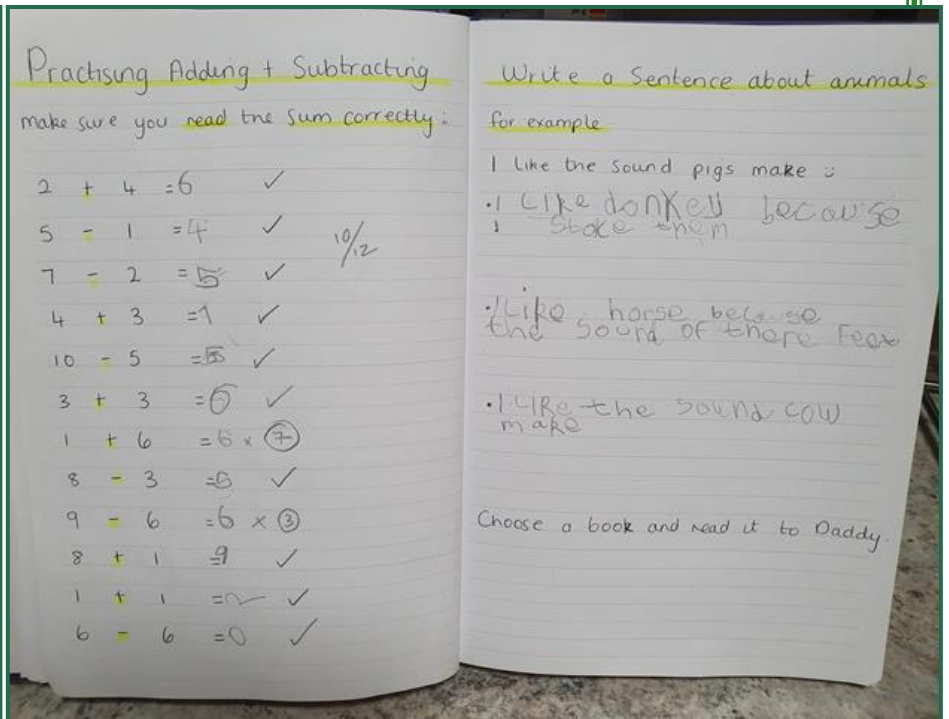 Practising Adding + Subtracting
make sure you read the sum correctly:
2 + 4 = 6 ✓
5 - 1 = 4 ✓
7 - 2 = 5 ✓
4 + 3 = 7 ✓
10 - 5 = 5 ✓
3 + 3 = 6 ✓
1 + 6 = 6 × 7
8 - 3 = 5 ✓
9 - 6 = 6 × 3
8 + 1 = 9 ✓
1 + 1 = 2 ✓
6 - 6 = 0 ✓
10/12
Write a Sentence about animals
for example
I like the sound pigs make :)
• I Like donkey because
I Stoke them
• I Like horse because
the Sound of there Feet
• I LIKe the sound cow
make
Choose a book and read it to Daddy.